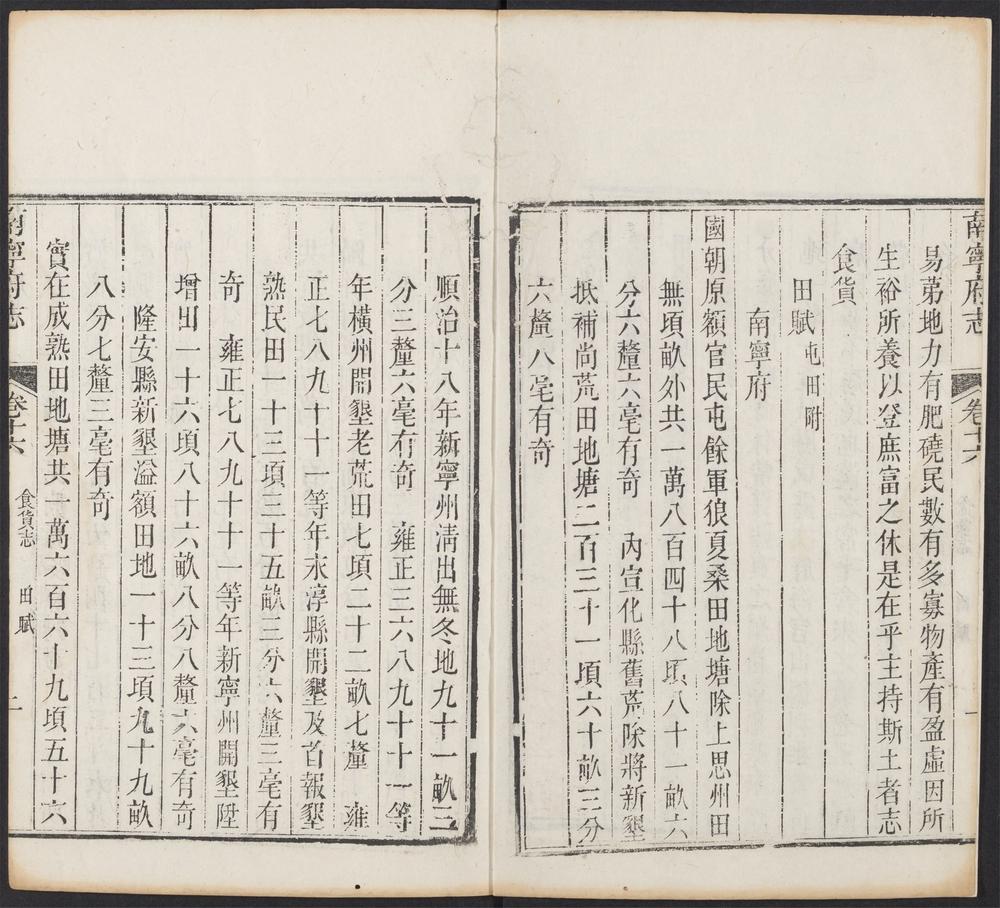 南寧府志 卷十六 一
易苐地力有肥磽民數有多寡物產有盈虛因所
生裕所養以登庶富之休是在乎主持斯土者志
食貨
田賦屯田附
南寧府
國朝原額官民屯餘軍狼夏桑田地塘除上思州田
無頃畝外共一萬八百四十八頃八十一畝六
分六釐六毫有奇 內宣化縣舊荒除將新墾
抵補尚荒田地塘二百三十一頃六十畝三分
六釐八毫有奇
順治十八年新寧州清出無冬地九十一畝三
分三釐六毫有奇 雍正三六八九十十一等
年橫州開墾老荒田七頃二十二畝七釐 雍
正七八九十十一等年永淳縣開墾及首報墾
熟民田一十三頃三十五畝三分六釐三毫有
奇 雍正七八九十十一等年新寧州開墾陞
增田一十六頃八十六畝八分八釐六毫有奇
隆安縣新墾溢額田地一十三頃九十九畝
八分七釐三毫有奇
實在成熟田地塘共一萬六百六十九頃五十六
南寧府志 卷十六 食貨志 田賦 二